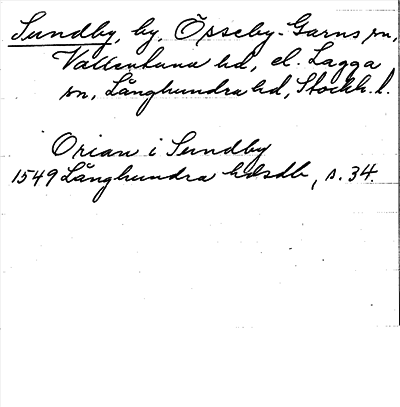 Sundby, by, Össeby-Garns sn,
Vallentuna hd, el. Lagga
sn, Långhundra hd, Stockh. l.
Örian i Sundby
1549 Långhundra hdsdb, s. 34.